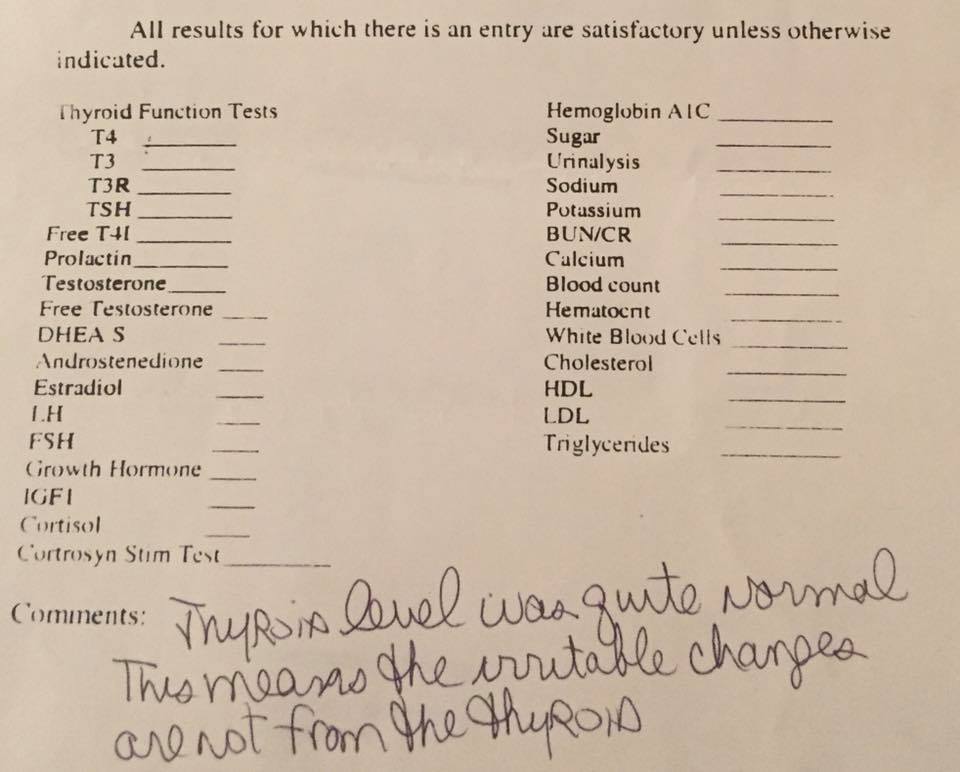 All results for which there is an entry are satisfactory unless otherwise
indicated.
Thyroid Function Tests
T4
T3
T3R
TSH
Free T4I
Prolactin
Testosterone
Free Testosterone
DHEA S
Androstenedione
Estradiol
LH
FSH
Growth Hormone
IGF1
Cortisol
Cortrosyn Stim Test
Hemoglobin A1C
Sugar
Urinalysis
Sodium
Potassium
BUN/CR
Calcium
Blood count
Hematocrit
White Blood Cells
Cholesterol
HDL
LDL
Triglycerides
Comments: Thyroid level was quite normal
This means the irritable changes
are not from the thyroid